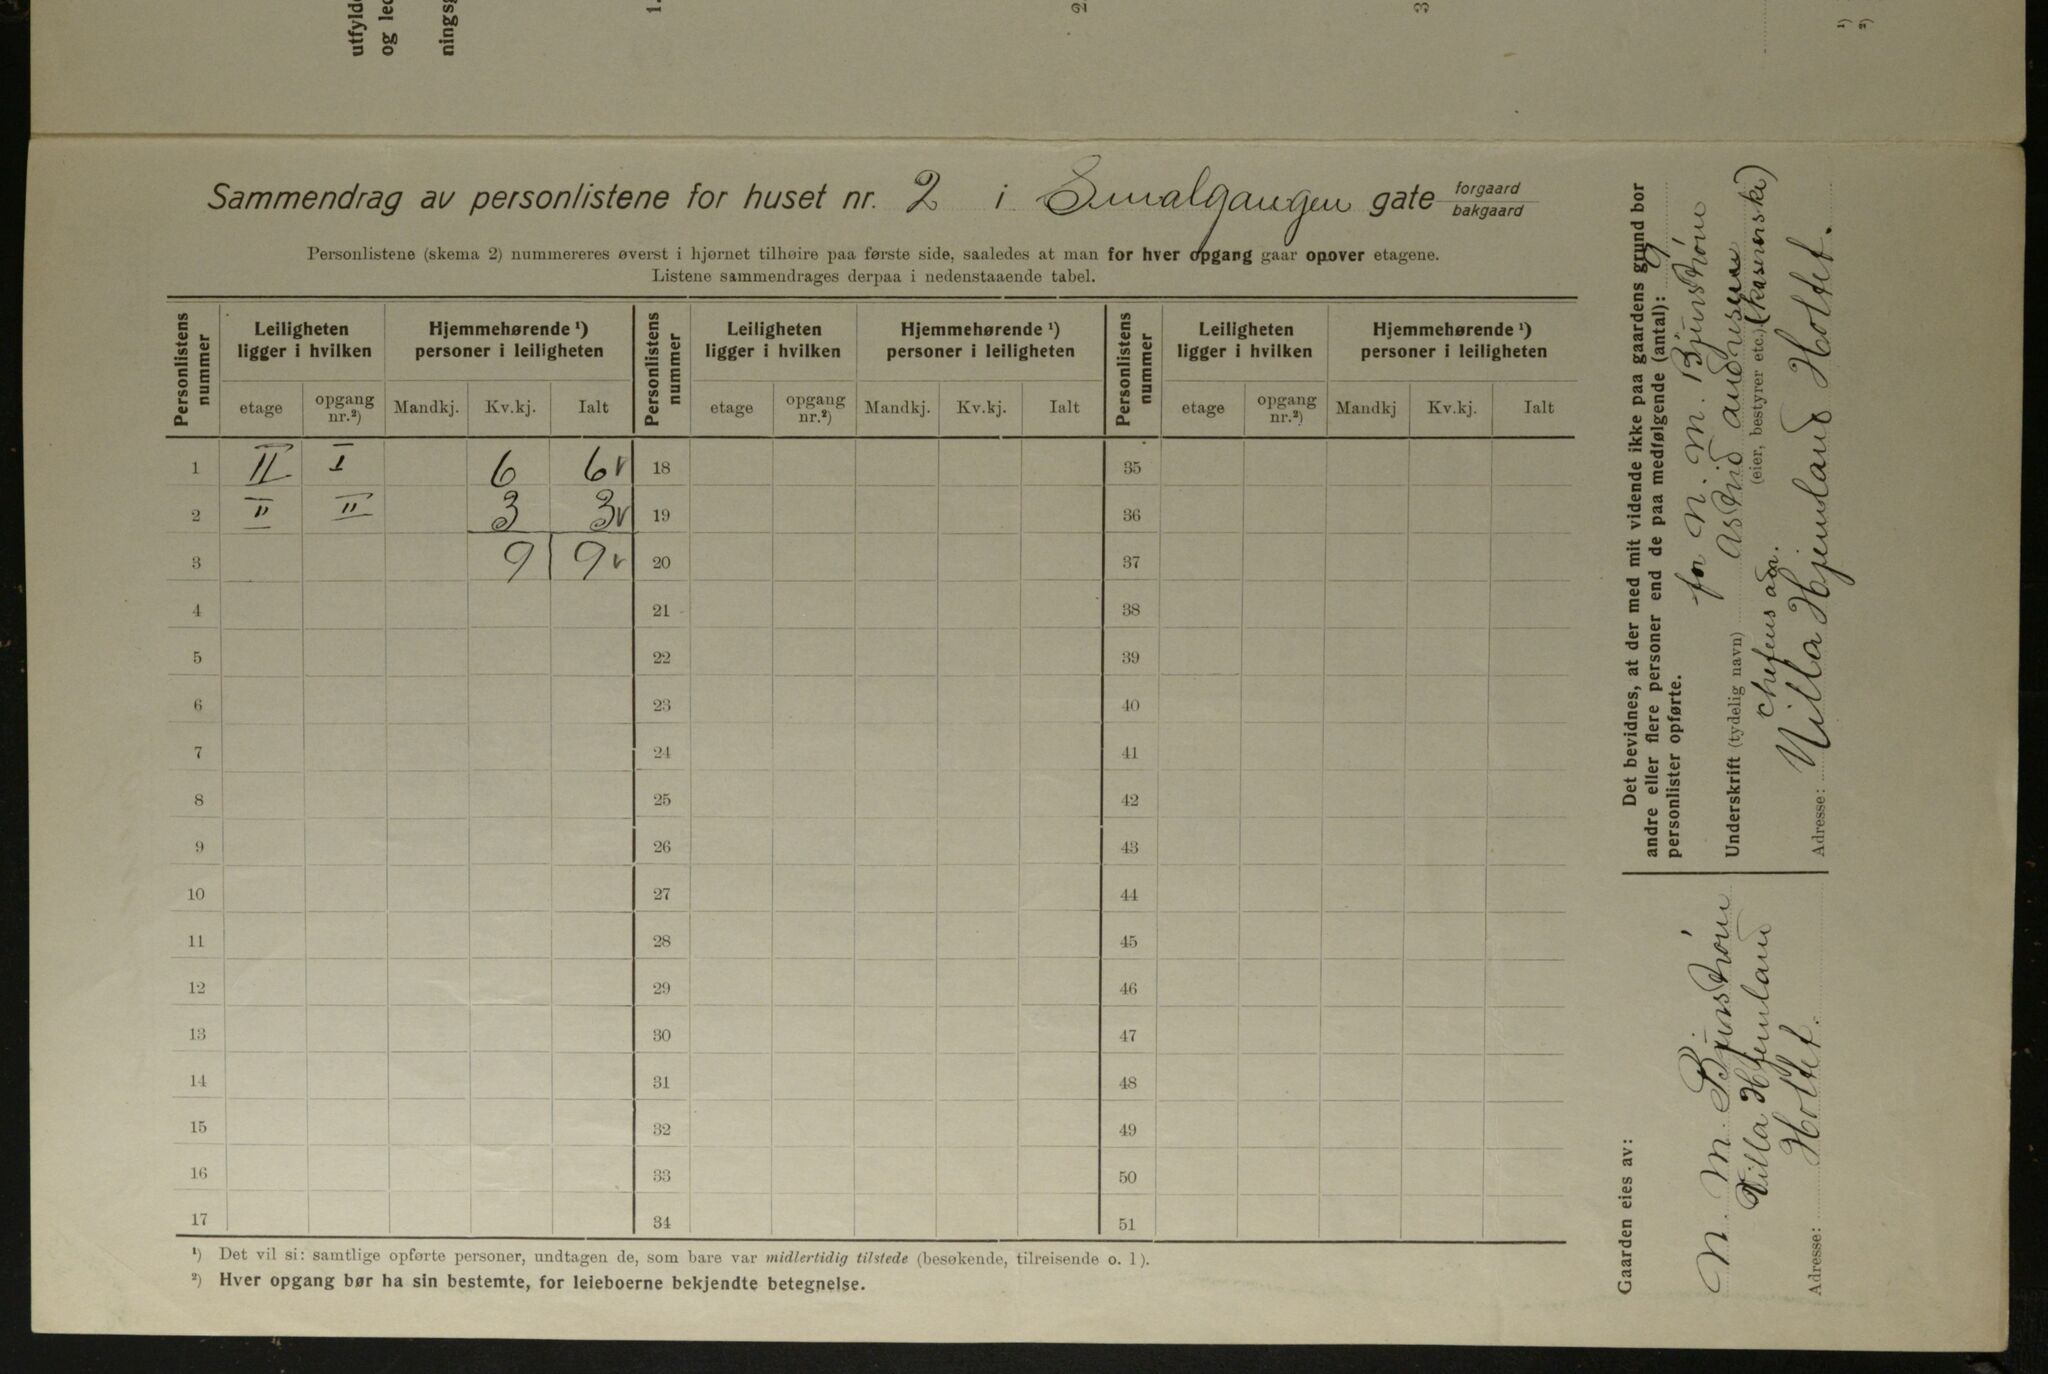 utfylde
og led
ningsg
1.
2
3
¹)
²)
Sammendrag av personlistene for huset nr. 2 i Smalgangen gate forgaard
bakgaard
Personlistene (skema 2) nummereres øverst i hjørnet tilhøire paa første side, saaledes at man for hver opgang gaar opover etagene.
Listene sammendrages derpaa i nedenstaaende tabel.
Personlistens nummer Leiligheten ligger i hvilken Hjemmehørende ¹) personer i leiligheten Personlistens nummer Leiligheten ligger i hvilken Hjemmehørende ¹) personer i leiligheten Personlistens nummer Leiligheten ligger i hvilken Hjemmehørende ¹) personer i leiligheten
etage opgang nr.²) Mandkj. Kv.kj. Ialt etage opgang nr.²) Mandkj. Kv.kj. Ialt etage opgang nr.²) Mandkj Kv.kj. Ialt
1 II I 6 6 18 35
2 II II 3 3 19 36
3 9 9 20 37
4 21 38
5 22 39
6 23 40
7 24 41
8 25 42
9 26 43
10 27 44
11 28 45
12 29 46
13 30 47
14 31 48
15 32 49
16 33 50
17 34 51
¹) Det vil si: samtlige opførte personer, undtagen de, som bare var midlertidig tilstede (besøkende, tilreisende o. l).
²) Hver opgang bør ha sin bestemte, for leieboerne bekjendte betegnelse.
Gaarden eies av:
N. M. Bjurström
Villa Hjemland
Adresse: Holtet.
Det bevidnes, at der med mit vidende ikke paa gaardens grund bor
andre eller flere personer end de paa medfølgende (antal): 9
personlister opførte.
for N. M. Bjurström
Underskrift (tydelig navn) Astrid
(eier, bestyrer etc.) (kasererske)
chefens adr.
Adresse: Villa Hjemland Holtet.